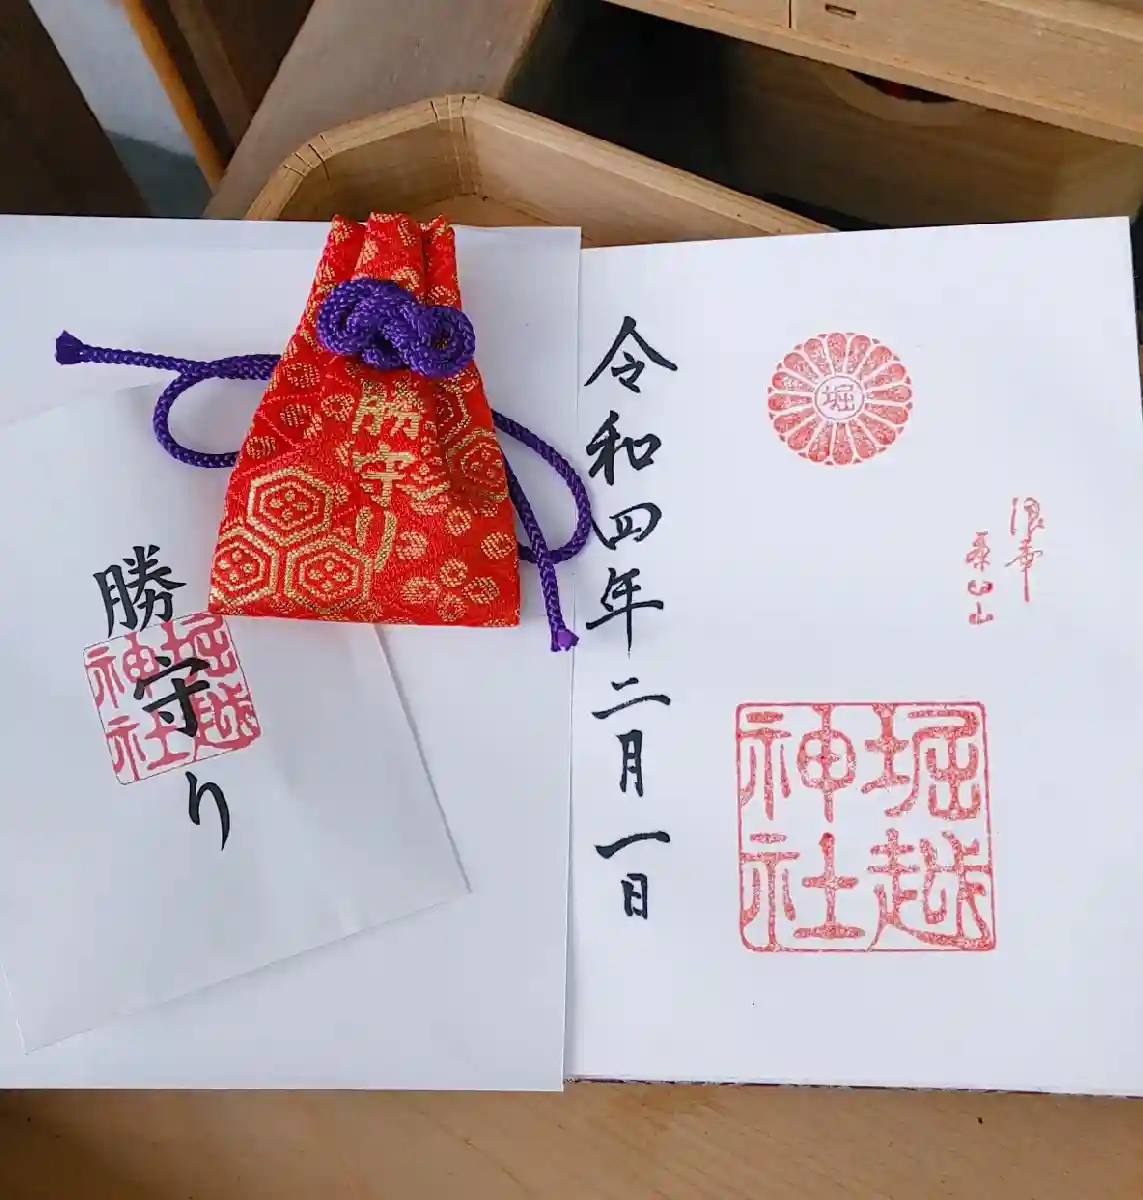 堀
浪華
茶臼山
堀越
神社
令和四年二月一日
勝守り
勝守り
堀越
神社